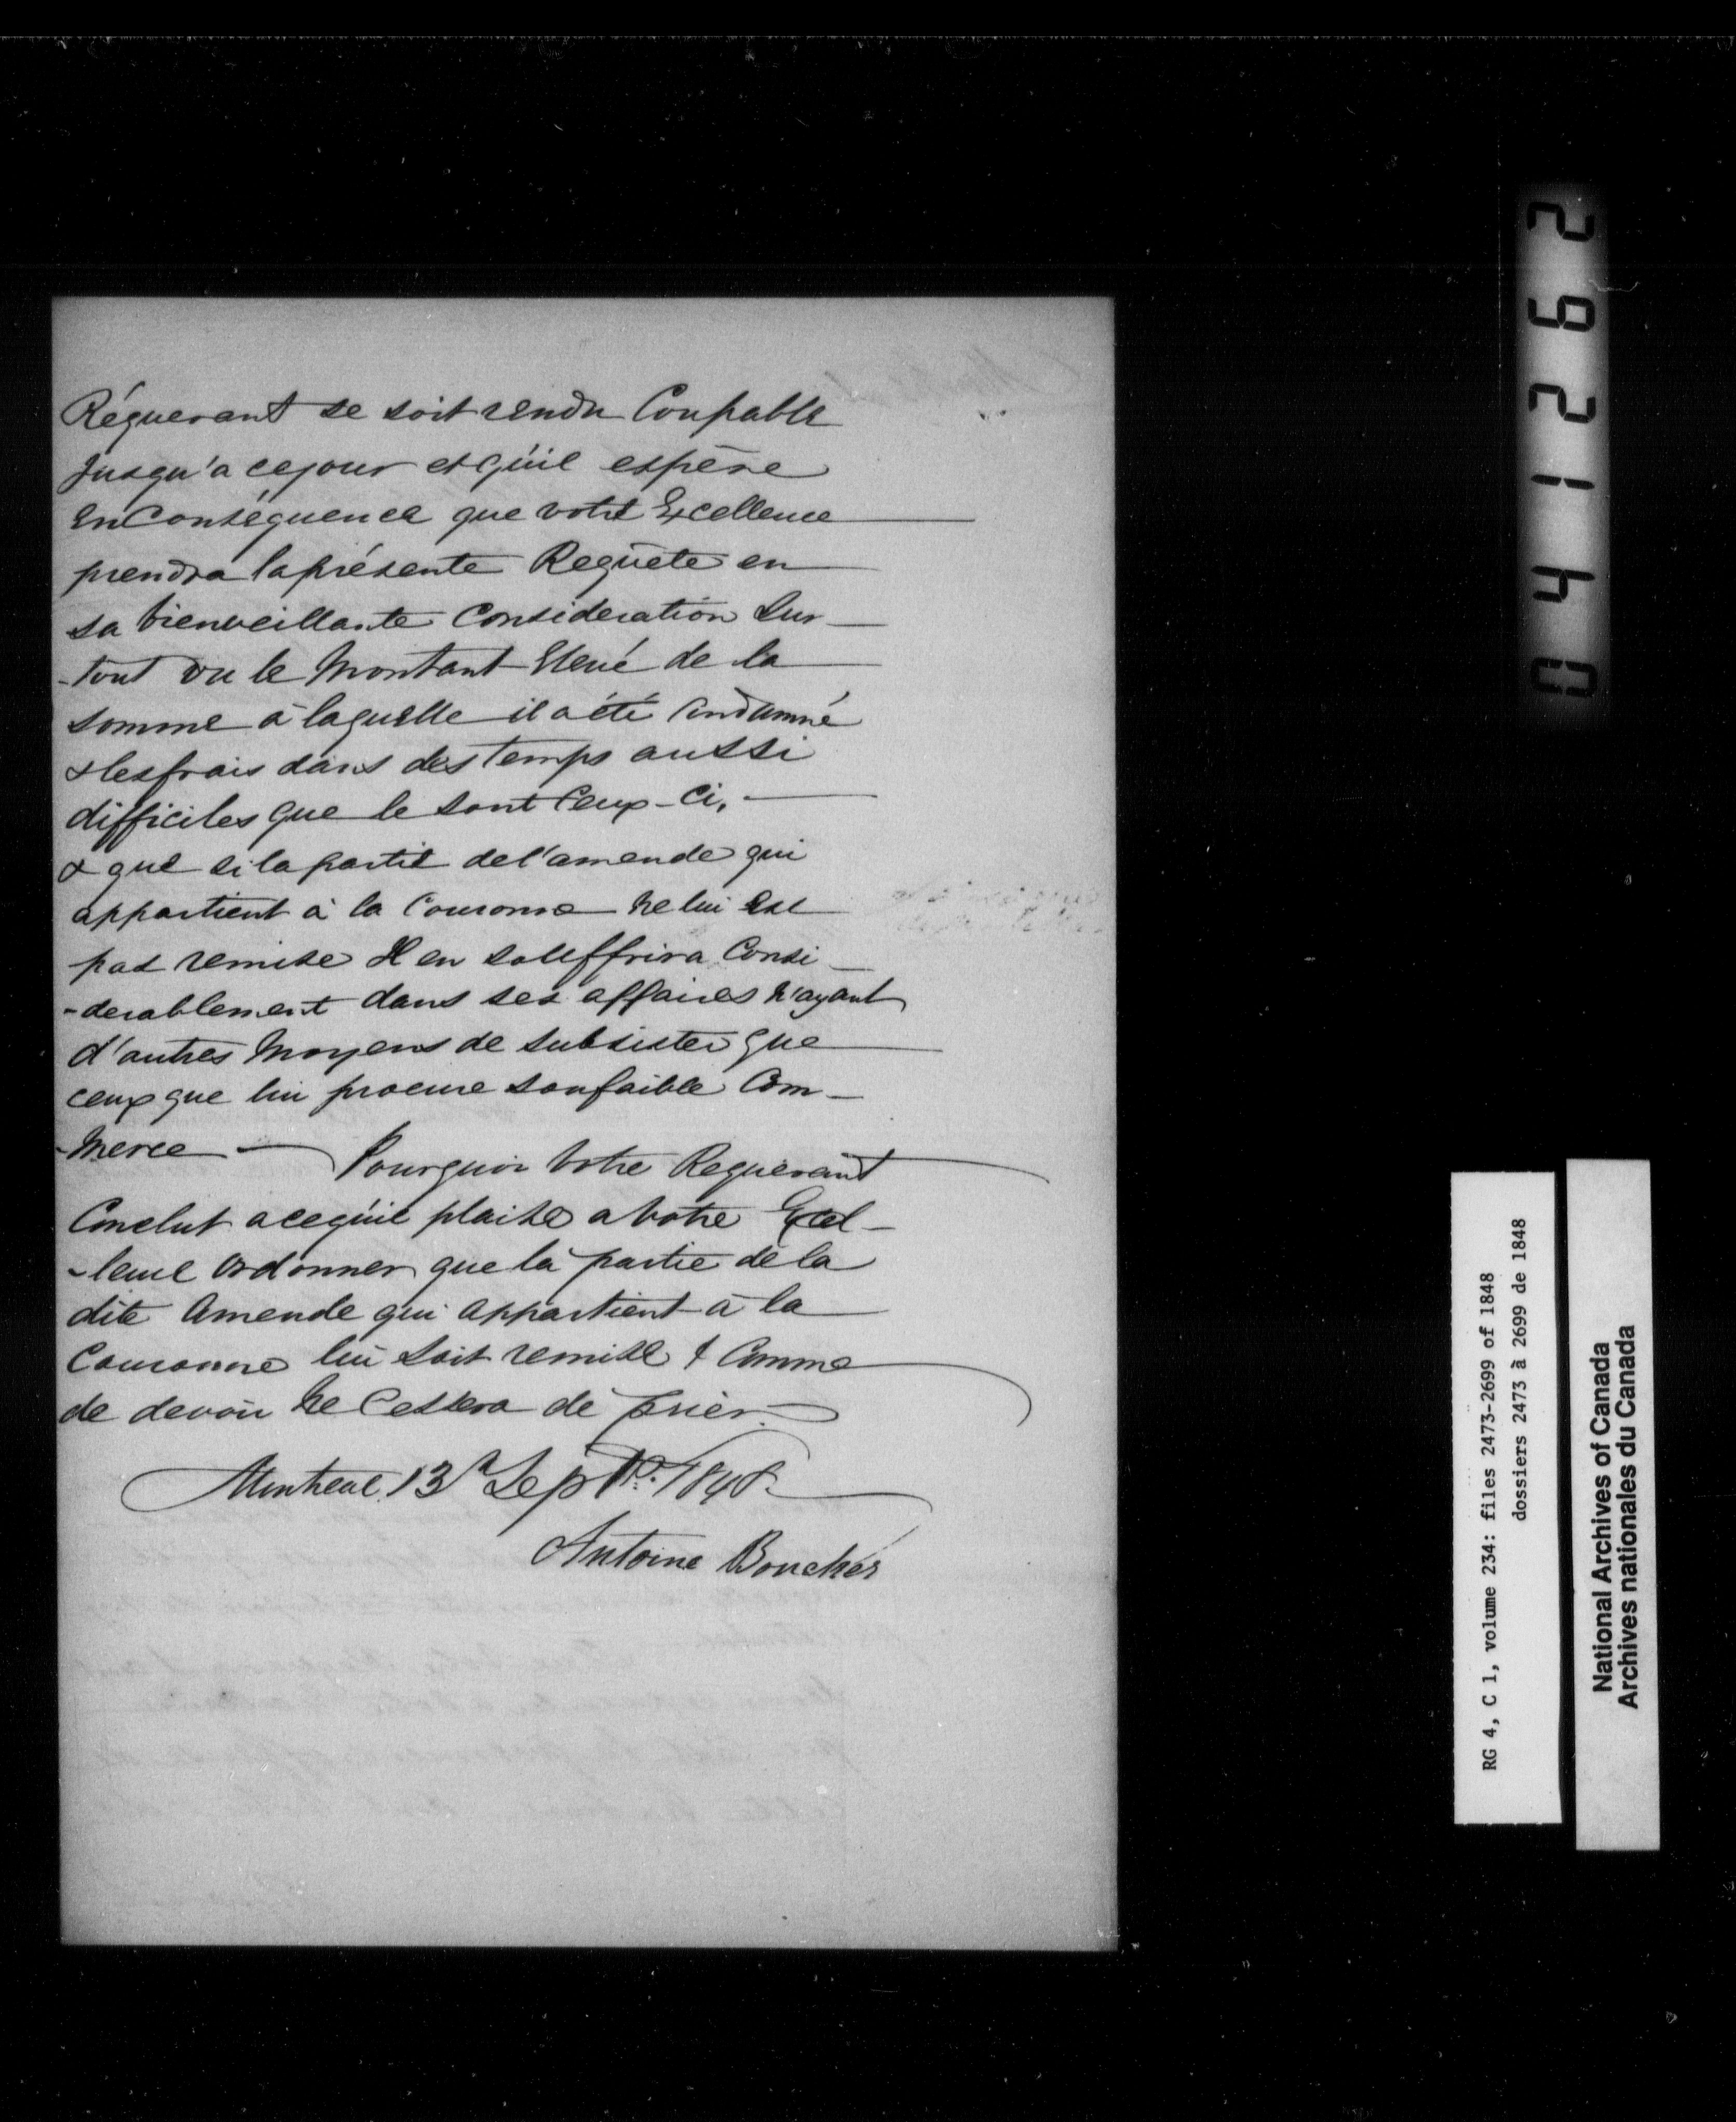 Réquerant se soit rendu Coupable
Jusqu'a cejour et qu'il espère
En Conséquence que votre Excellence
prendra la présente Requête en
sa bienveillante Consideration Sur
-tout vu le Montant Elevé de la
somme à laquelle il a été Condamné
& les frais dans des temps aussi
difficiles que le sont Ceux-Ci.
& que si la partie de l'amende qui
appartient à la Couronne ne lui Est
pas remise Il en souffrira Consi
-derablement dans ses affaires n'ayant
d'autres Moyens de subsister que
ceux que lui procure son faible Com
-merce — Pourquoi Votre Requerant
Conclut a cequ'il plaise a Votre Excel
-lence Ordonner que la partie de la
dite Amende qui Appartient à la
Couronne lui soit remise & Comme
de devoir Ne Cessera de prier.
Montreal 13 Sept. 1848
Antoine Boucher
041262
RG 4, C 1, volume 234: files 2473-2699 of 1848
dossiers 2473 à 2699 de 1848
National Archives of Canada
Archives nationales du Canada